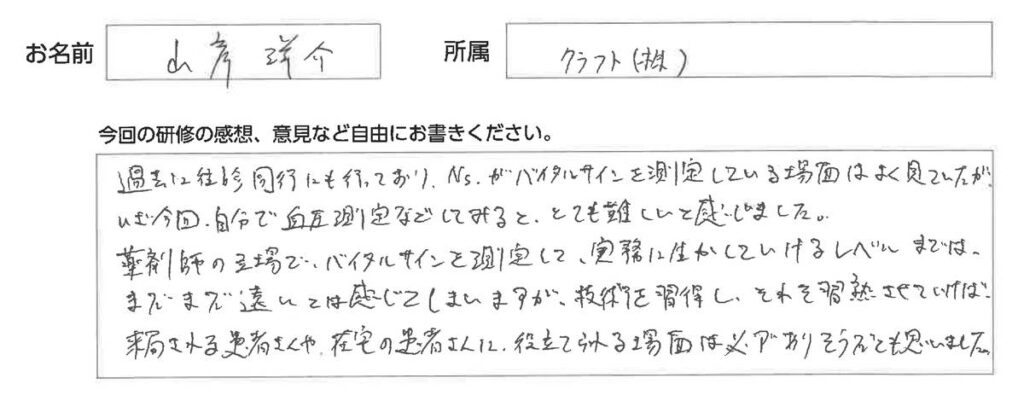 お名前 山彦 洋介 所属 クラフト(株)
今回の研修の感想、意見など自由にお書きください。
過去に往診同行にも行っており、Ns.がバイタルサインを測定している場面はよく見ていたが、
いざ今回、自分で血圧測定などしてみると、とても難しいと感じました。
薬剤師の立場で、バイタルサインを測定して、実務に生かしていけるレベルまでは、
まだまだ遠いとは感じてしまいますが、技術を習得し、それを習熟させていけば、
来局される患者さんや、在宅の患者さんに、役立てられる場面は必ずありそうだとも思いました。